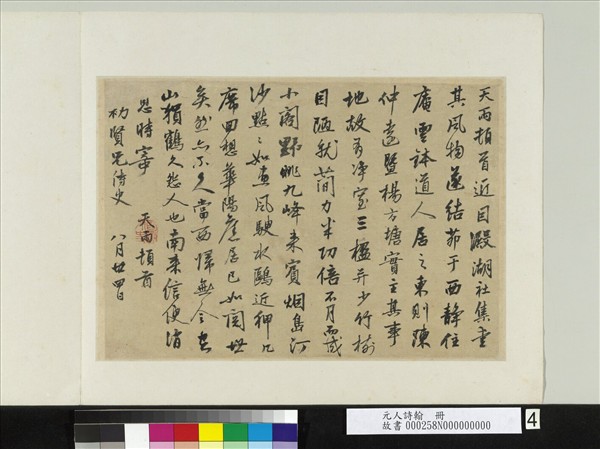 天雨頓首近因澱湖社集愛
其風物遂結茆于西靜住
庵雪缽道人居之東則陳
仲遠暨楊方塘實主其事
地故有淨室三楹并少竹樹
因陋就簡力半功倍不月而成
小閣野眺九峰來賓烟島汀
沙點點如畫風駛水鷗近狎几
席回想華陽舊居已如隔世
矣然亦不久當西歸無令空
山猿鶴久怨人也南來信便附
思時寧
天雨頓首
朸賢兄侍史
八月廿四日
元人詩翰 冊
故書 000258N000000000
4